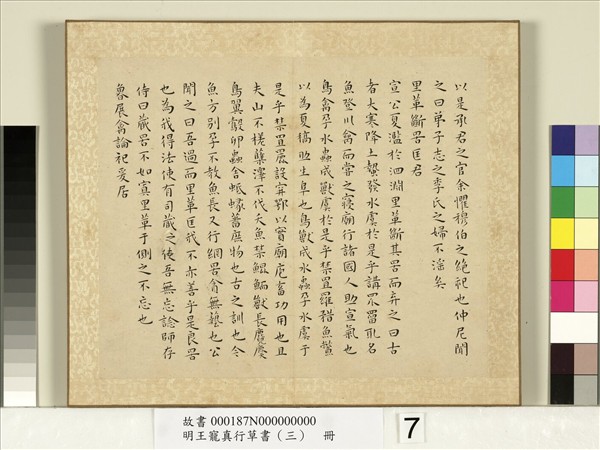 以是承君之官余懼穆伯之絶祀也仲尼聞
之曰弟子志之季氏之婦不淫矣
里革斷罟匡君
宣公夏濫於泗淵里革斷其罟而弃之曰古
者大寒降土蟄發水虞於是乎講罛罶取名
魚登川禽而嘗之寢廟行諸國人助宣氣也
鳥禽孕水蟲成獸虞於是乎禁罝羅矠魚鱉
以為夏槁助生阜也鳥獸成水蟲孕水虞于
是乎禁罝䍡設穽鄂以實廟庖畜功用也且
夫山不槎櫱澤不伐夭魚禁鯤鮞獸長麑䴠
鳥翼鷇卵蟲舍蚳蝝蕃庶物也古之訓也今
魚方別孕不教魚長又行網罟貪無藝也公
聞之曰吾過而里革匡我不亦善乎是良罟
也為我得法使有司藏之使吾無忘諗師存
侍曰藏罟不如寘里革于側之不忘也
魯展禽論祀爰居
故書 000187N000000000
明王寵真行草書（三） 冊
7